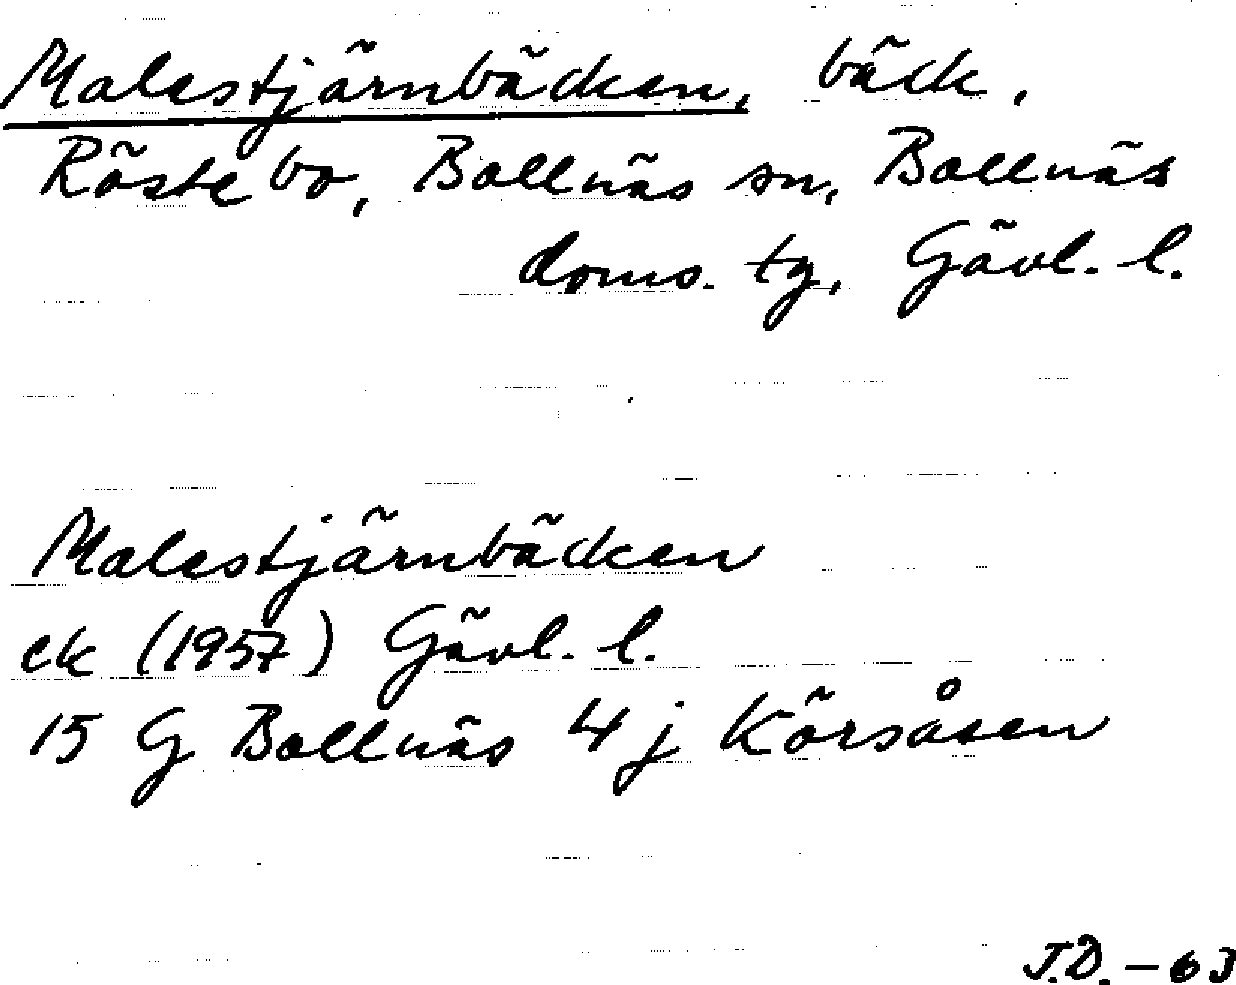 Malestjärnbäcken, bäck,
Röstebo, Bollnäs sn, Bollnäs
doms. tg, Gävl. l.
Malestjärnbäcken
ek (1957) Gävl. l.
15 G Bollnäs 4 j Körsåsen
J.D. - 63